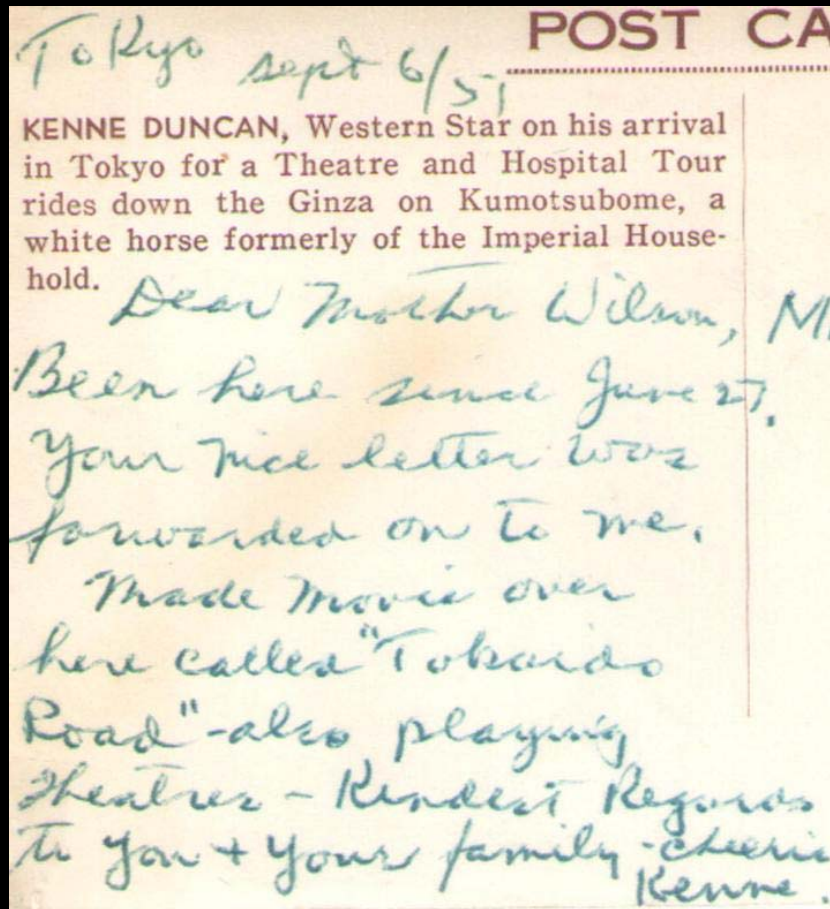 POST CA
Tokyo Sept 6/51
KENNE DUNCAN, Western Star on his arrival
in Tokyo for a Theatre and Hospital Tour
rides down the Ginza on Kumotsubome, a
white horse formerly of the Imperial House-
hold.
Dear Mother Wilson,
Been here since June 27.
Your nice letter was
forwarded on to me.
Made movie over
here called "Tokaido
Road" - also playing
Theatres - Kindest Regards
to you + your family - cheerio
Kenne.